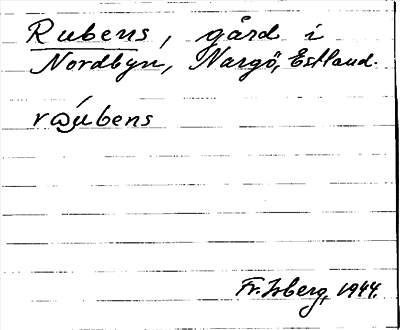 Rubens, gård i
Nordbyn, Nargö, Estland.
rωúbens
Fr. Isberg, 1944.